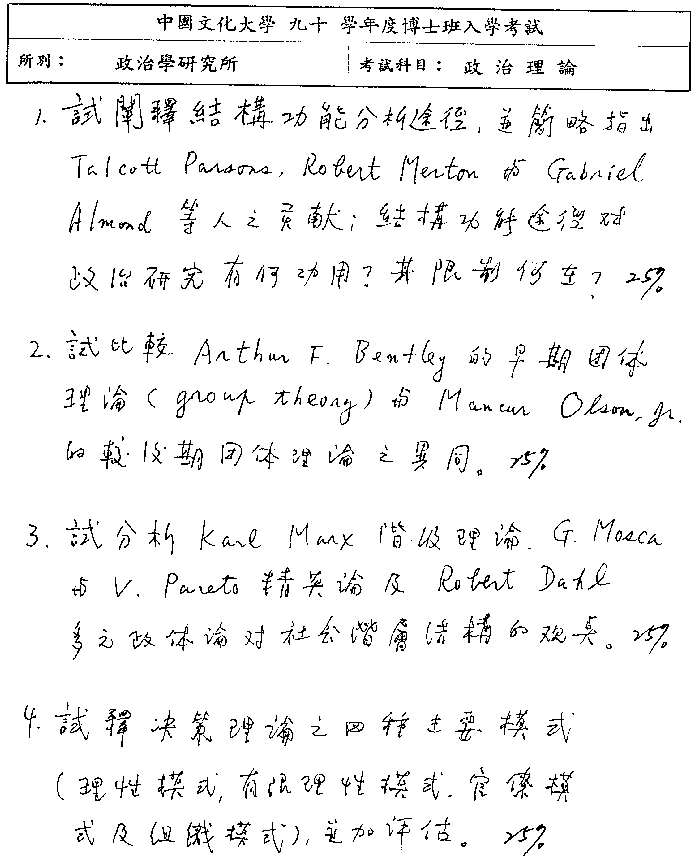 中國文化大學 九十 學年度博士班入學考試
所別： 政治學研究所 考試科目： 政治理論
1. 試闡釋結構功能分析途徑，並簡略指出
Talcott Parsons, Robert Merton 与 Gabriel
Almond 等人之貢献；結構功能途徑对
政治研究有何功用？其限制何在？ 25%
2. 試比較 Arthur F. Bentley 的早期团体
理論 (group theory) 与 Mancur Olson, Jr.
的較後期团体理論之異同。 25%
3. 試分析 Karl Marx 階級理論. G. Mosca
与 V. Pareto 精英論及 Robert Dahl
多元政体論对社会階層結構的观点。 25%
4. 試釋決策理論之四種主要模式
(理性模式, 有限理性模式. 官僚模
式及組織模式), 並加評估。 25%